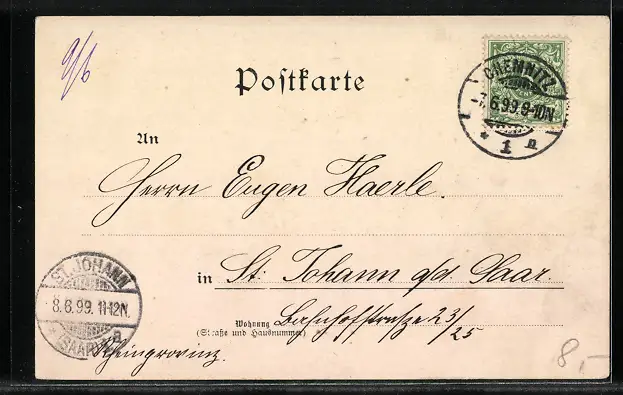 9/6
Postkarte
CHEMNITZ
7.6.99.9-10N.
* 1 n
An
Herrn Eugen Haerle.
in St. Johann a/d. Saar.
Wohnung Bahnhofstraße 23/25
(Straße und Hausnummer)
Rheinprovinz.
ST. JOHANN
8.6.99. 11-12N.
* SAARBR. a
8,-